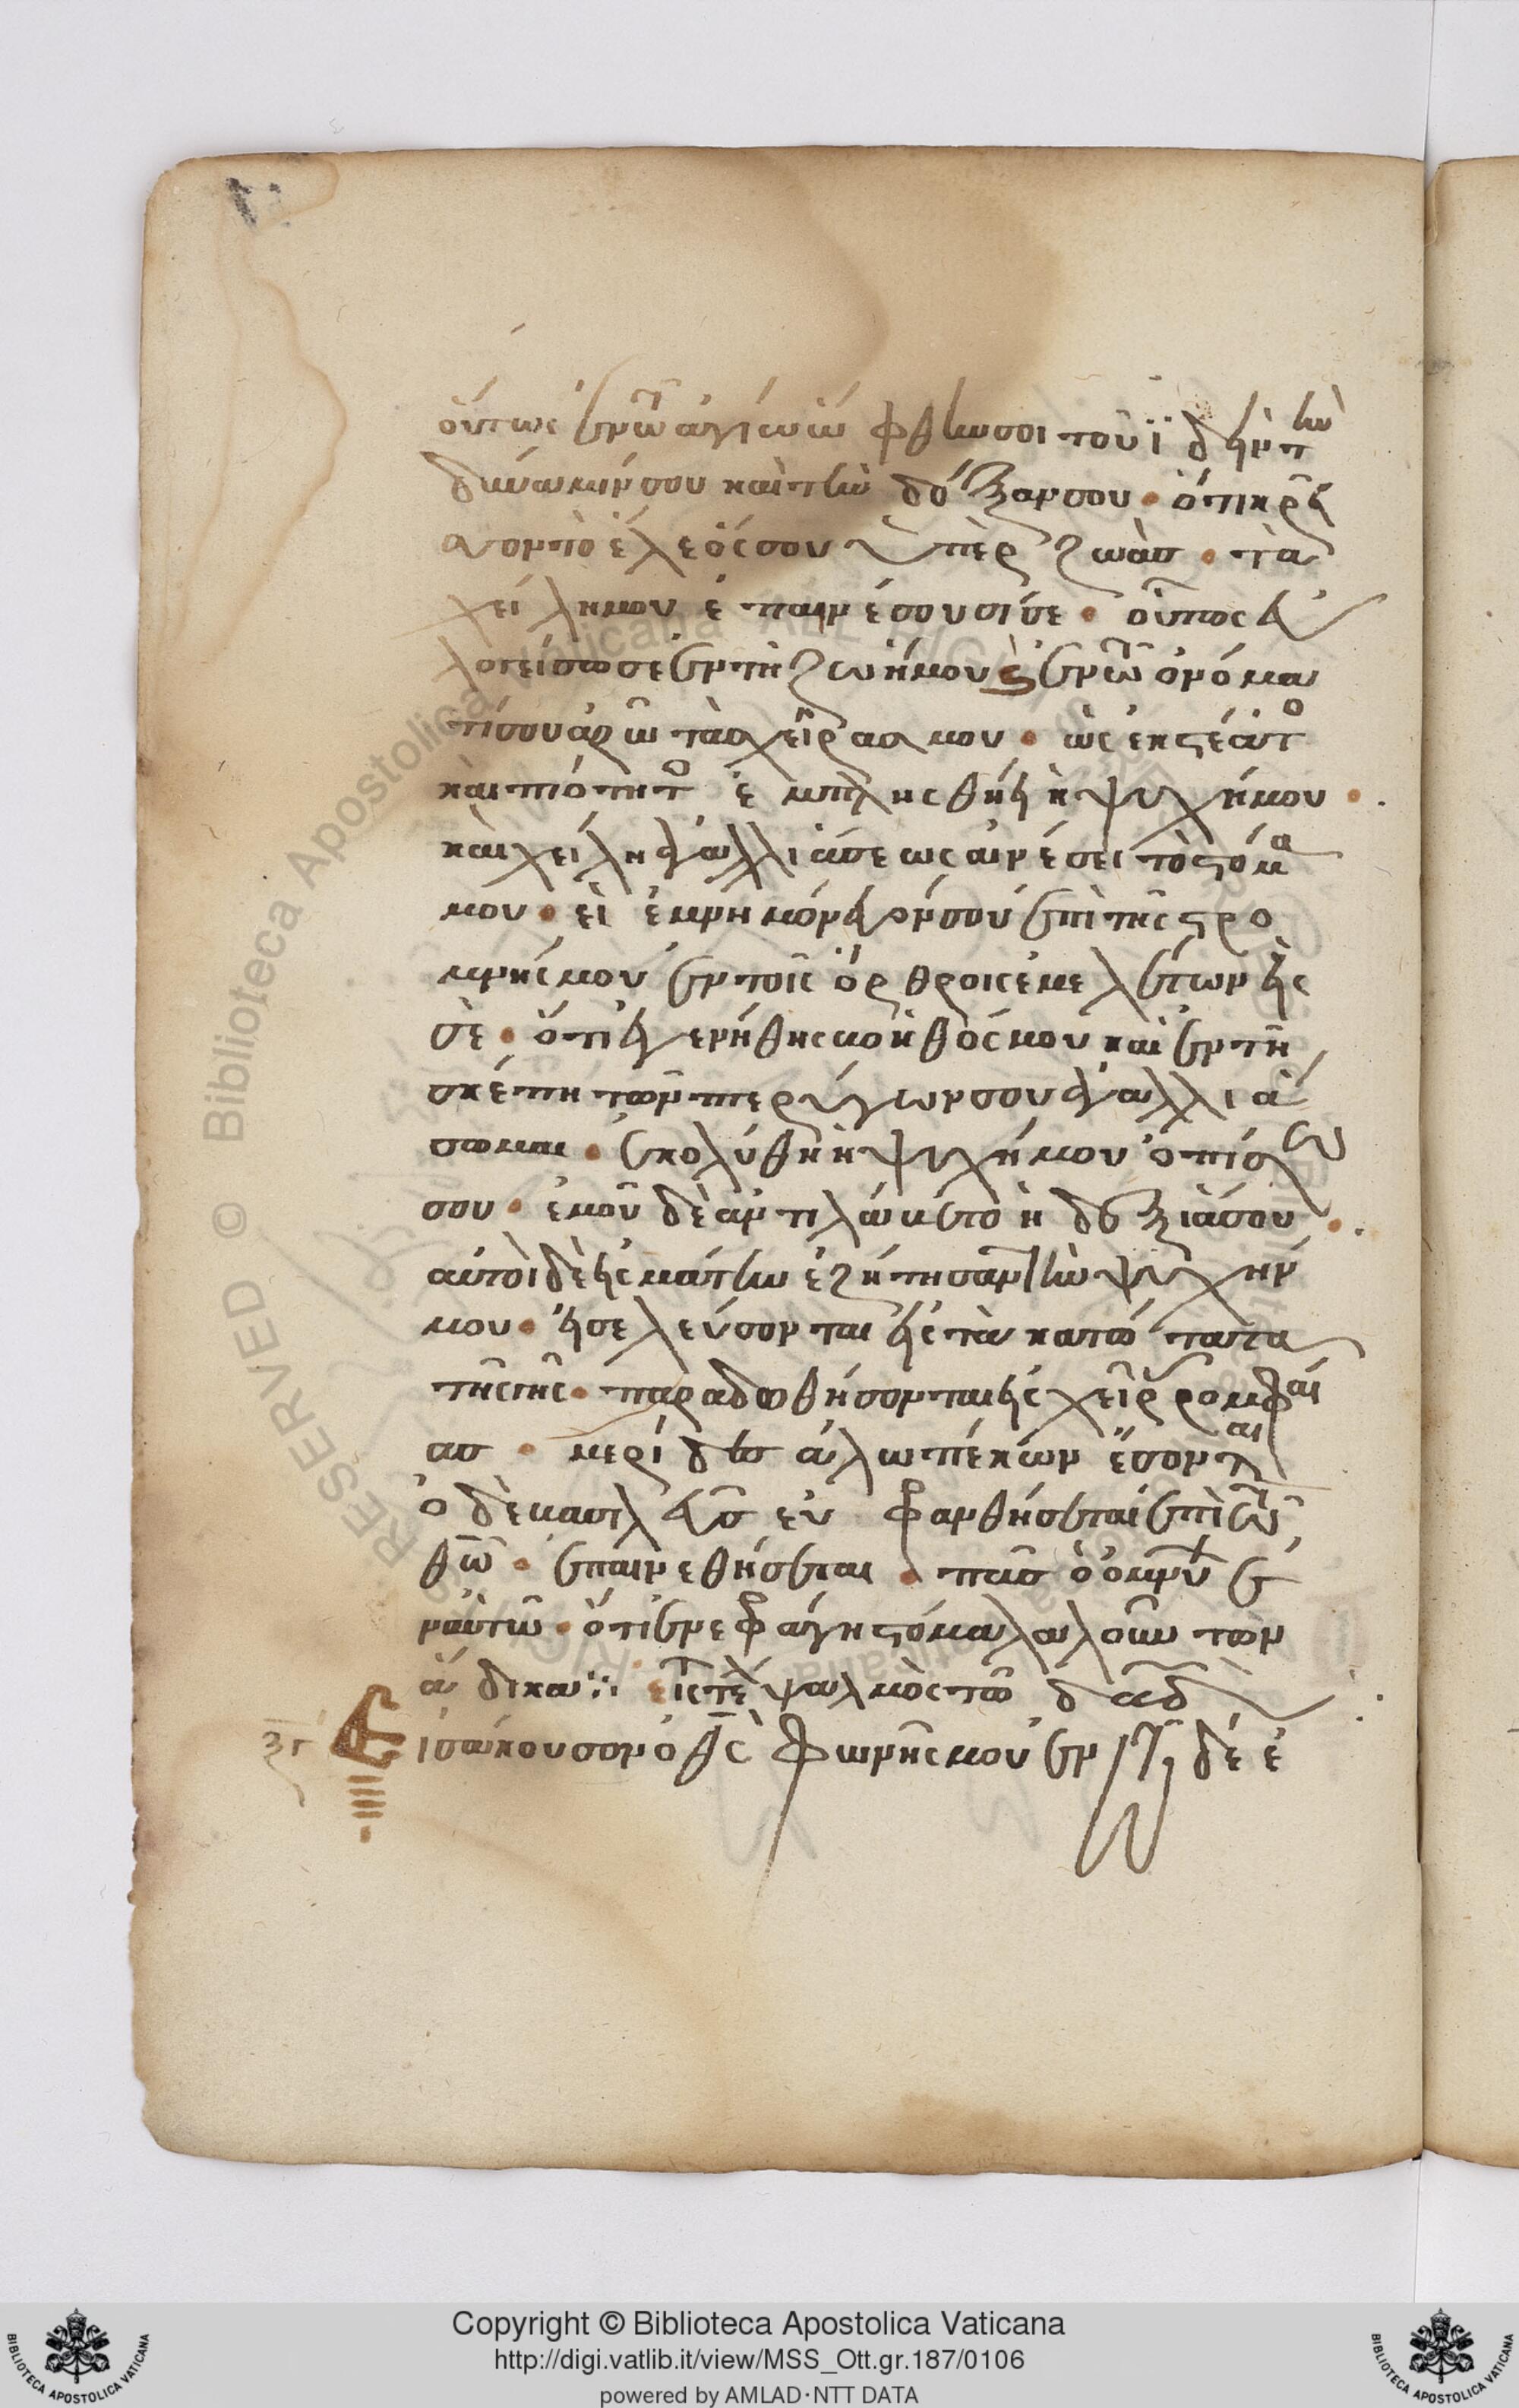 οὕτως ἐν τῶ ἁγίω ὤφθην σοι τοῦ ἰδεῖν τὴν
δύναμίν σου καὶ τὴν δόξαν σου · ὅτι κρεῖ
σσον τὸ ἔλεός σου ὑπὲρ ζωὰσ · τὰ
χείλη μου ἐπαινέσουσί σε · οὕτως εὐ
λογείσω σε ἐν τῆ ζωῆ μου ϛ ἐν τῶ ὀνόμα
τί σου ἀρῶ τὰσ χεῖρασ μου · ὡς ἐκ στέατο
καὶ πιότητο ἐμπλησθείη ἡ ψυχή μου ·
καὶ χείλη ἀγαλλιάσεως αἰνέσει τὸ στόμα
μου · εἰ ἐμνημόνευόν σου ἐπὶ τῆς στρο
μνῆς μου ἐν τοῖς ὄρθροις ἐμελέτων εἰς
σὲ · ὅτι ἐγενήθης βοηθός μου καὶ ἐν τῆ
σκέπη τῶν πτερύγων σου ἀγαλλιά
σωμαι · ἐκολύθη ἡ ψυχή μου ὀπίσω
σου · ἐμοῦ δὲ ἀντιλάβετο ἡ δεξιά σου ·
αὐτοὶ δὲ εἰς μάτην ἐζήτησαν τὴν ψυχήν
μου · εἰσελεύσονται εἰς τὰ κατώτατα
τῆς γῆς · παραδωθήσονται εἰς χεῖρ ρομφαί
ασ · μερίδεσ ἀλωπέκων ἔσονται
ὁ δὲ βασιλεὺσ εὐφρανθήσεται ἐπὶ τῶ
θῶ · ἐπαινεθήσεται · πᾶσ ὁ ὀμνύων ἐ
ν αὐτῶ · ὅτι ἐνεφράγη στόμα λαλούντων
ἄδικα ⁘ εἰς τὸ τέλος ψαλμὸς τῶ δαδ
ξγ Εἰσάκουσον ὁ θς φωνῆς μου ἐν τῶ δέε
Copyright © Biblioteca Apostolica Vaticana
http://digi.vatlib.it/view/MSS_Ott.gr.187/0106
powered by AMLAD·NTT DATA